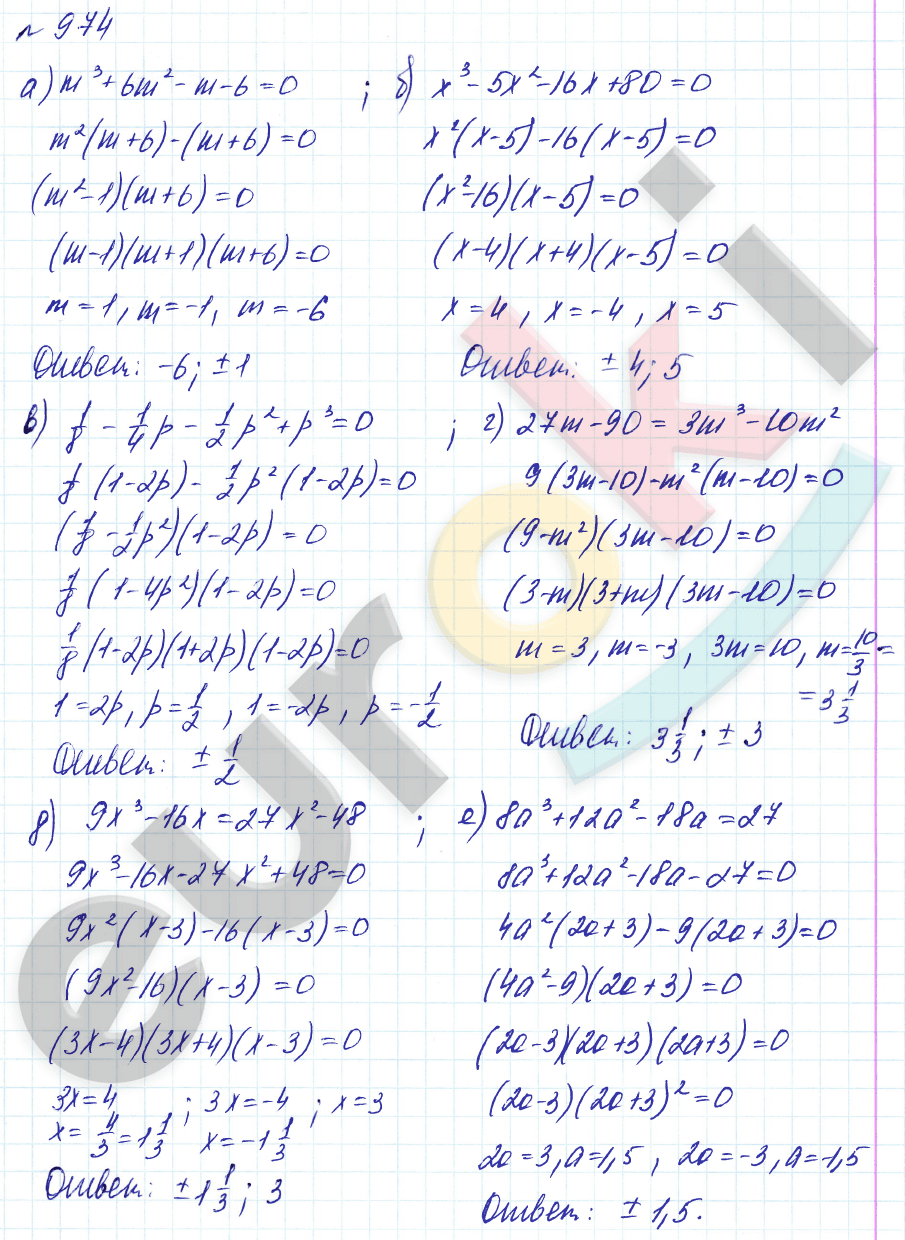 № 974
а) m³ + 6m² - m - 6 = 0 ;
m²(m+6) - (m+6) = 0
(m² - 1)(m+6) = 0
(m-1)(m+1)(m+6) = 0
m = 1, m = -1, m = -6
Ответ: -6; ±1
б) x³ - 5x² - 16x + 80 = 0
x²(x-5) - 16(x-5) = 0
(x² - 16)(x-5) = 0
(x-4)(x+4)(x-5) = 0
x = 4, x = -4, x = 5
Ответ: ±4; 5
в) 1/8 - 1/4 p - 1/2 p² + p³ = 0 ;
1/8 (1-2p) - 1/2 p² (1-2p) = 0
(1/8 - 1/2 p²)(1-2p) = 0
1/8 (1-4p²)(1-2p) = 0
1/8 (1-2p)(1+2p)(1-2p) = 0
1 = 2p, p = 1/2, 1 = -2p, p = -1/2
Ответ: ± 1/2
г) 27m - 90 = 3m³ - 10m²
9(3m-10) - m²(m-10) = 0
(9-m²)(3m-10) = 0
(3-m)(3+m)(3m-10) = 0
m = 3, m = -3, 3m = 10, m = 10/3 =
= 3 1/3
Ответ: 3 1/3; ±3
д) 9x³ - 16x = 27x² - 48 ;
9x³ - 16x - 27x² + 48 = 0
9x²(x-3) - 16(x-3) = 0
(9x² - 16)(x-3) = 0
(3x-4)(3x+4)(x-3) = 0
3x = 4 ; 3x = -4 ; x = 3
x = 4/3 = 1 1/3 x = -1 1/3
Ответ: ±1 1/3; 3
е) 8a³ + 12a² - 18a = 27
8a³ + 12a² - 18a - 27 = 0
4a²(2a+3) - 9(2a+3) = 0
(4a² - 9)(2a+3) = 0
(2a-3)(2a+3)(2a+3) = 0
(2a-3)(2a+3)² = 0
2a = 3, a = 1,5, 2a = -3, a = -1,5
Ответ: ±1,5.
euroki